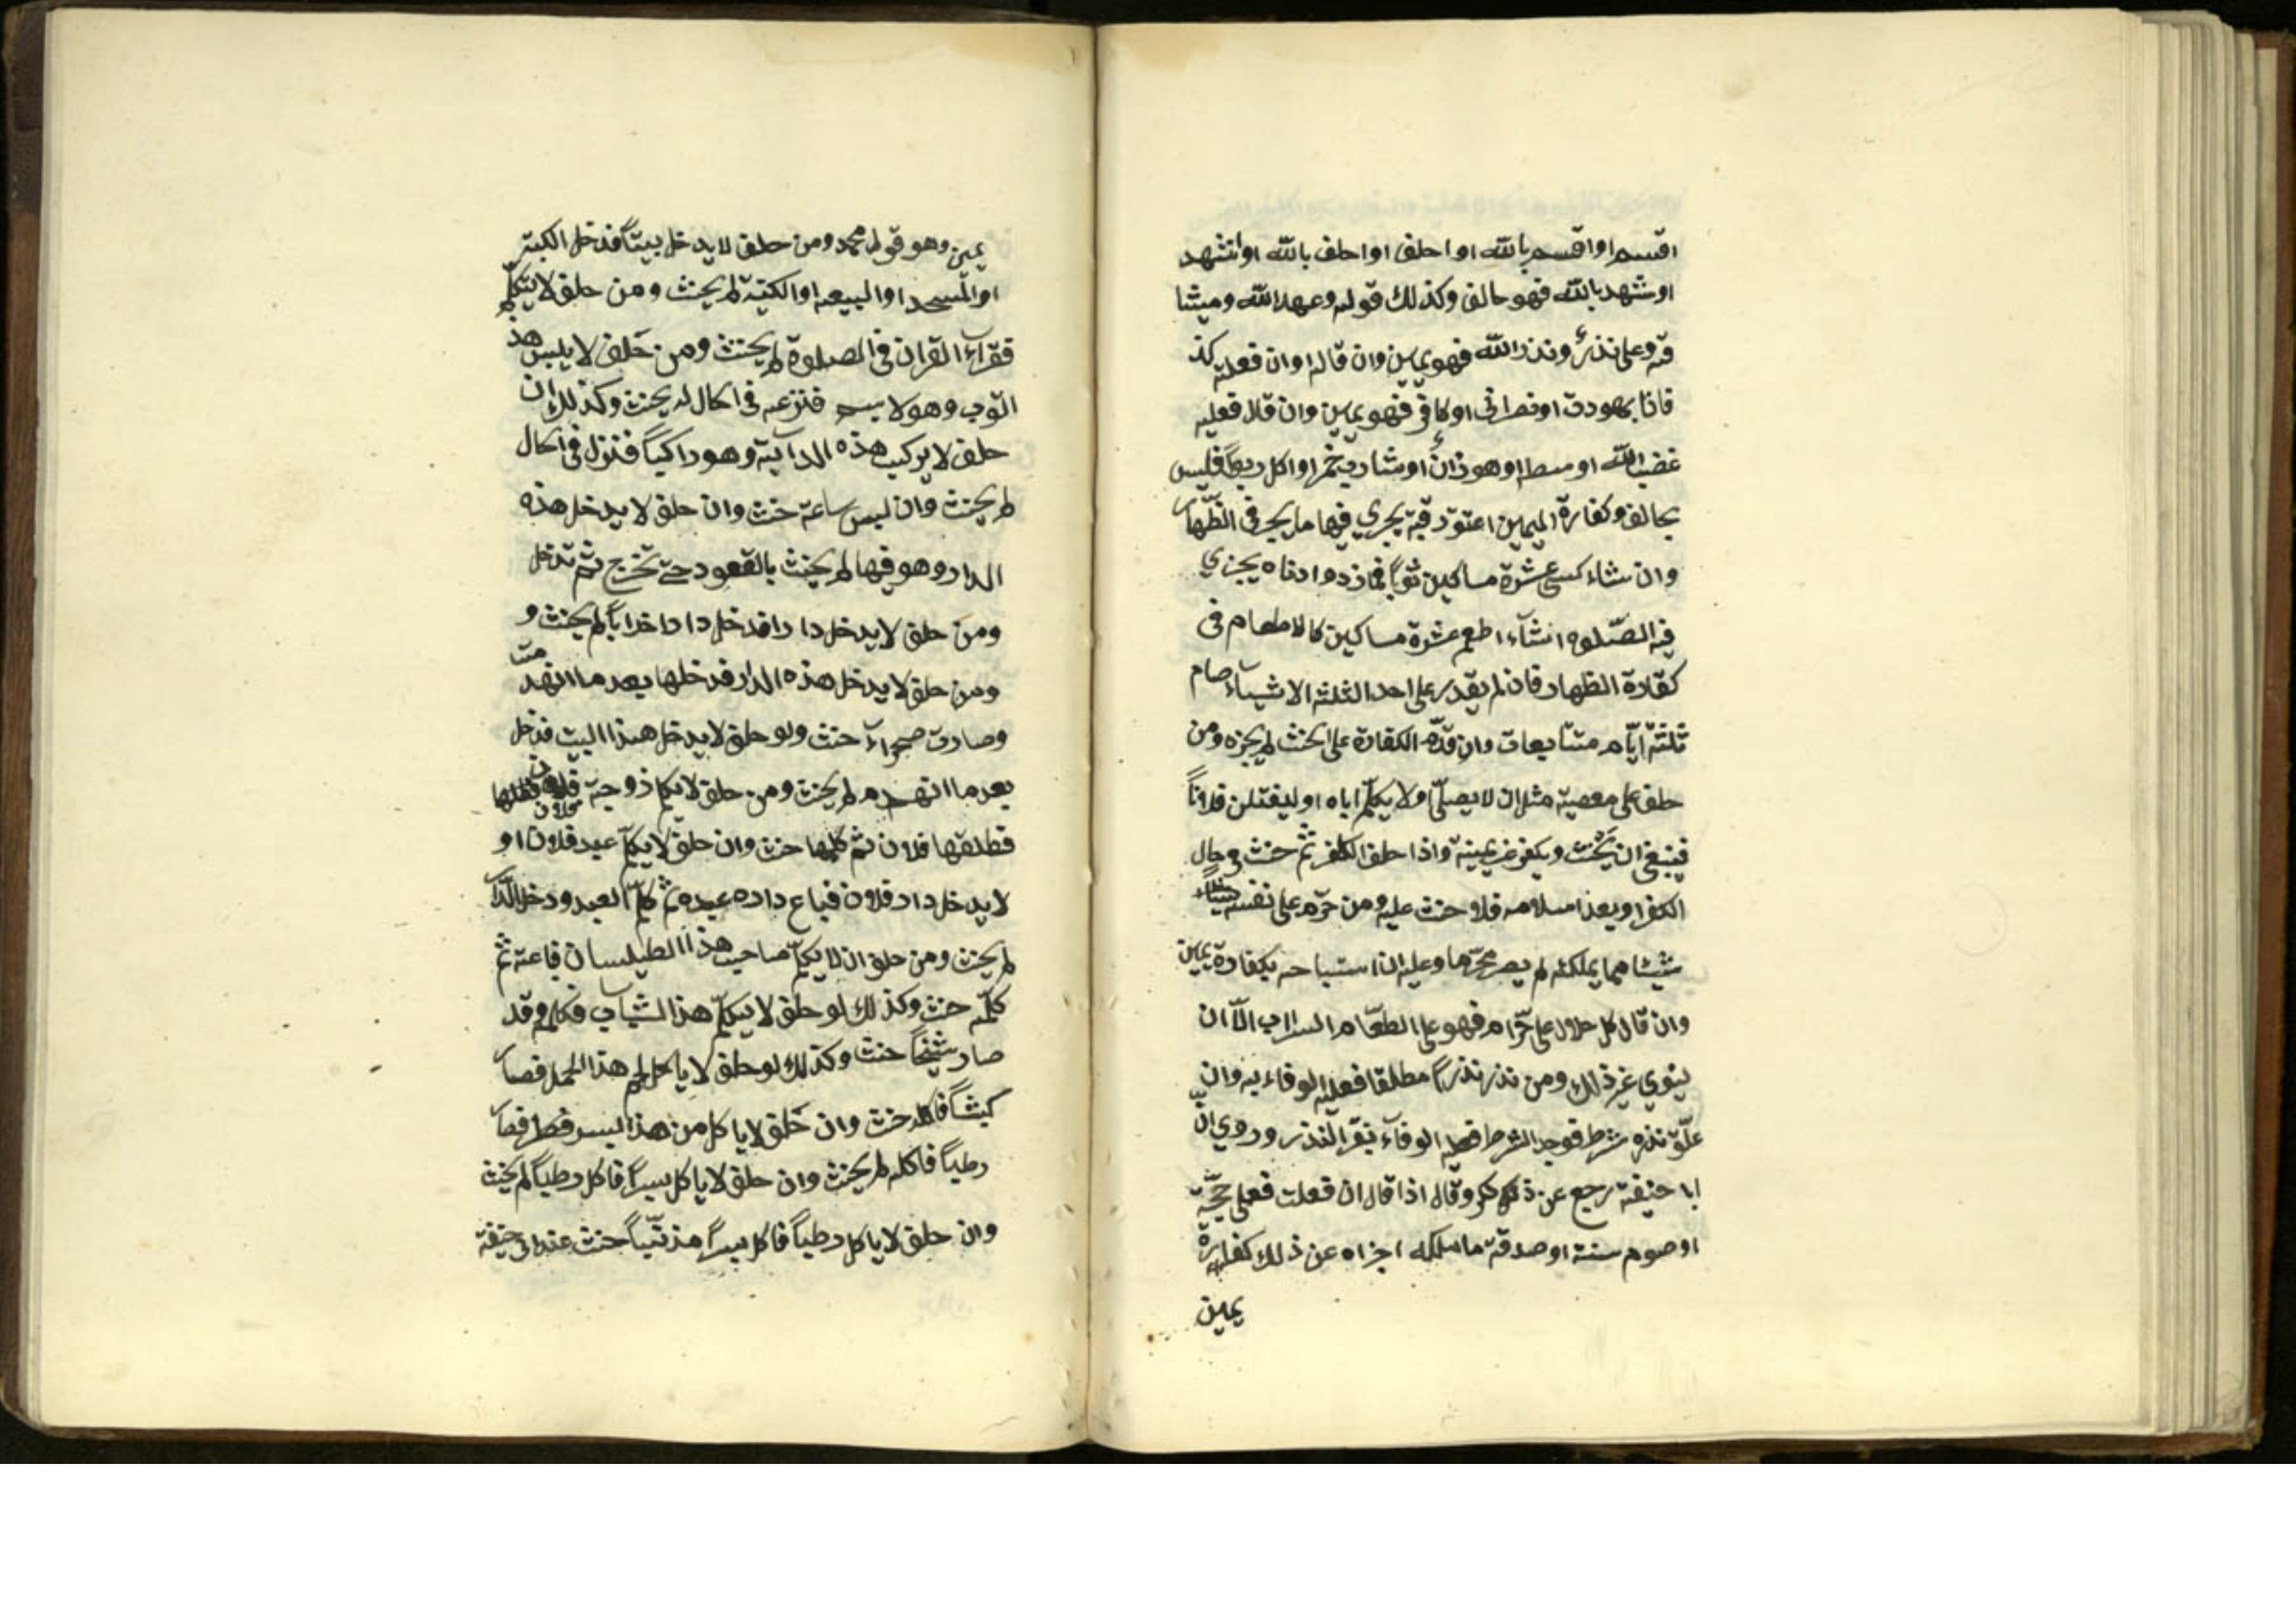 اقسم او اقسم بالله او احلف او احلف بالله او اشهد
او شهد بالله فهو حالف وكذلك قوله وعهد الله وميثا
قه وعلى نذرٌ ونذر الله فهو يمين وان قال او ان فعلت كذ
فانا يهودى او نصرانى او كافر فهو يمين وان قال فعليه
غضب الله او سط او هو زانٌ او شارب خمر او اكل ربوا فليس
بحالف وكفارة اليمين اعتق رقبة يجزي فيها ما يجزي فى الظهار
وان شاء كسى عشرة مساكين ثوباً فما زد وادناه يجزي
فيه الصلوه انشآء اطعم عشرة مساكين كالاطعام فى
كفارة الظهار فان لم يقدر على احد الثلثه الاشياء صام
ثلثة ايام متتابعات وان قدم الكفارة على الحنث لم يجزه ومن
حلف على معصية مثل ان لا يصلى ولا يكلم اباه او ليقتلن فلاناً
فينبغى ان يحنث ويكفر عن يمينه واذا حلف الكافر ثم حنث فى حال
الكفر او بعد اسلامه فلا حنث عليه ومن حرم على نفسه
شيئا مما يملكه لم يصر محرما وعليه ان استباحه بكفارة يمين
وان قال كل حلال على حرام فهو على الطعام الشراب الا ان
ينوي غير ذلك ومن نذر نذراً مطلقا فعليه الوفاء به وان
علق نذره شرط فوجد الشرط فعليه الوفآء بنفر النذر وروي ان
ابا حنيفة رجع عن ذلك وقال اذا قال ان فعلت فعلى حجة
او صوم سنة او صدقة ما املكه اجزاه عن ذلك كفارة
يمين
يمين وهو قول محمد ومن حلف لا يدخل بيتاً فدخل الكبتر
او المسجد او البيعه او الكنيه لم يحنث ومن حلف لا يتكلم
فقرآء القران فى الصلوة لم يحنث ومن حلف لا يلبس هذ
الثوب وهو لابسه فنزعه فى الحال لم يحنث وكذلك ان
حلف لا يركب هذه الدآبة وهو راكباً فنزل فى الحال
لم يحنث وان لبس ساعة حنث وان حلف لا يدخل هذه
الدار وهو فيها لم يحنث بالقعود حتى تخرج ثم تدخل
ومن حلف لا يدخل دارا فدخل دارا خراباً لم يحنث و
ومن حلف لا يدخل هذه الدار فدخلها بعد ما انهدمت
وصارت صحرآء حنث ولو حلف لا يدخل هذا البيت فدخل
بعد ما انهدم لم يحنث ومن حلف لا يكلم زوجة فلان
فطلقها فلان ثم كلمها حنث وان حلف لا يكلم عبد فلان او
لا يدخل دار فلان فباع داره عبده ثم كلم العبد ودخل الدا
لم يحنث ومن حلف ان لا يكلم صاحب هذا الطيلسان فباعه ثم
كلمه حنث وكذلك لو حلف لا يكلم هذا الشاب فكلمه وقد
صار شيخاً حنث وكذلك لو حلف لا ياكل لحم هذا الحمل فصار
كبشاً فاكله حنث وان حلف لا ياكل من هذا البسر فصار
رطباً فاكله لم يحنث وان حلف لا ياكل بسراً فاكل رطباً لم يحنث
وان حلف لا ياكل رطباً فاكل بسراً مذنباً حنث عند ابى حنيفة